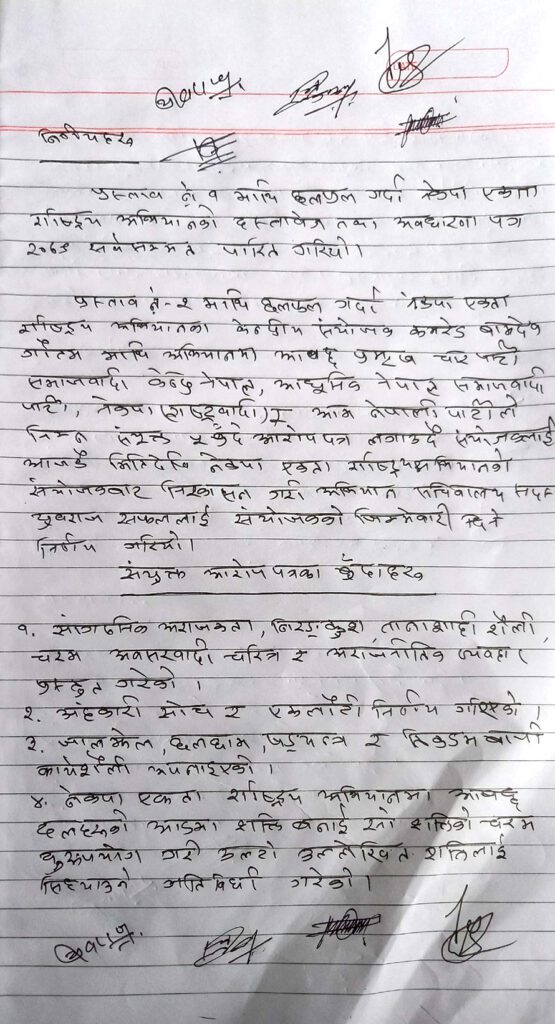 निर्णयहरु
प्रस्ताव नं १ माथि छलफल गर्दा नेकपा एकता
राष्ट्रिय अभियानको दस्तावेज तथा अवधारणा पत्र
२०७९ सर्वसम्मत पारित गरियो।
प्रस्ताव नं-२ माथि छलफल गर्दा नेकपा एकता
राष्ट्रिय अभियानका केन्द्रीय संयोजक कमरेड बामदेव
गौतम माथि अभियानमा आवद्ध प्रमुख चार पार्टी
समाजवादी केन्द्र नेपाल, आधुनिक नेपाल समाजवादी
पार्टी, नेकपा (राष्ट्रवादी) र आम नेपाली पार्टीले
निम्न संयुक्त बुँदे आरोपपत्र लगाउदै संयोजकलाई
आजकै मितिदेखि नेकपा एकता राष्ट्रिय अभियानको
संयोजकबाट निस्कासन गरी अभियान सचिवालय सदस्य
युवराज सफललाई संयोजकको जिम्मेवारी दिने
निर्णय गरियो।
संयुक्त आरोप पत्रका बुँदाहरु
१. सांगठनिक अराजकता, निरङ्कुश तानाशाही शैली,
चरम अवसरवादी चरित्र र अराजनीतिक व्यवहार
प्रस्तुत गरेको।
२. अंहकारी सोच र एकलौटी निर्णय गरिएको।
३. जालझेल, छलछाम, षड्यन्त्र र तिकडमबाजी
कार्यशैली अपनाइएको।
४. नेकपा एकता राष्ट्रिय अभियानमा आवद्ध
दलहरुको आडमा शक्ति बनाई सो शक्तिको चरम
दुरुपयोग गरी उल्टो उल्लेखित शक्तिलाई
सिध्याउने गतिविधी गरेको।